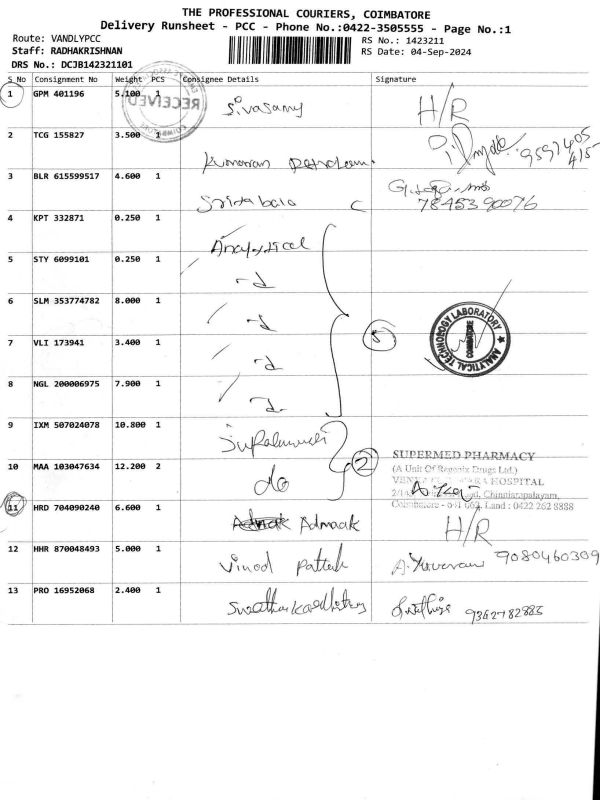 THE PROFESSIONAL COURIERS, COIMBATORE
Delivery Runsheet - PCC - Phone No.:0422-3505555 - Page No.:1
Route: VANDLYPCC
RS No.: 1423211
Staff: RADHAKRISHNAN
RS Date: 04-Sep-2024
DRS No.: DCJB142321101
S No Consignment No Weight PCS Consignee Details Signature
1 GPM 401196 5.100 1 Sivasamy H/R
RECEIVED
2 TCG 155827 3.500 1 9597405
415
3 BLR 615599517 4.600 1 7845390076
4 KPT 332871 0.250 1 Analytical
5 STY 6099101 0.250 1
6 SLM 353774782 8.000 1
ANALYTICAL TECHNOLOGY LABORATORY
COIMBATORE
7 VLI 173941 3.400 1 5
8 NGL 200006975 7.900 1
9 IXM 507024078 10.800 1
SUPERMED PHARMACY
(A Unit Of Regenix Drugs Ltd.)
HOSPITAL
10 MAA 103047634 12.200 2 do 2
Chinniampalayam,
Coimbatore - 641 062. Land : 0422 262 8888
11 HRD 704090240 6.600 1 Admaak H/R
12 HHR 870048493 5.000 1 Vinod Pattak 9080460309
13 PRO 16952068 2.400 1 9362782885